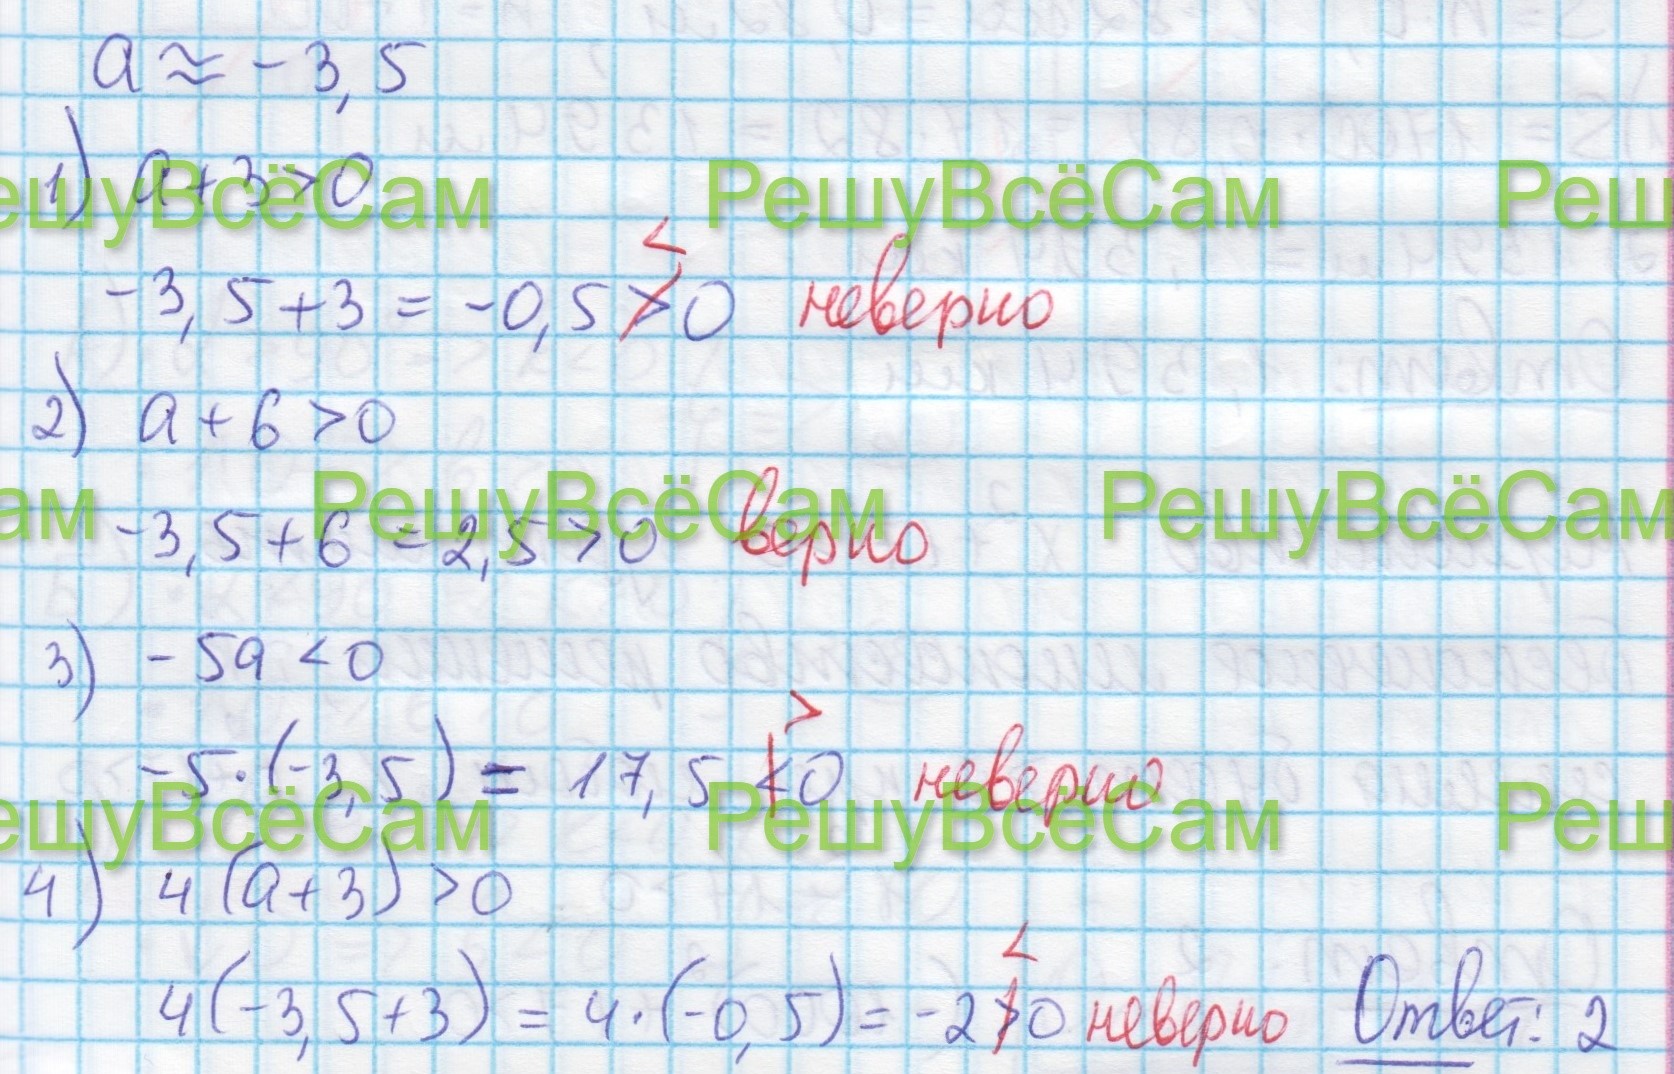 a ≈ -3,5
1) a+3>0
РешуВсёСам РешуВсёСам Решу
-3,5+3 = -0,5 > 0 < неверно
2) a+6>0
Сам РешуВсёСам РешуВсёСам
-3,5+6 = 2,5>0 верно
3) -5a <0
-5·(-3,5) = 17,5 <0 > неверно
ешуВсёСам РешуВсёСам Реш
4) 4(a+3)>0
4(-3,5+3) = 4·(-0,5) = -2>0 < неверно Ответ: 2